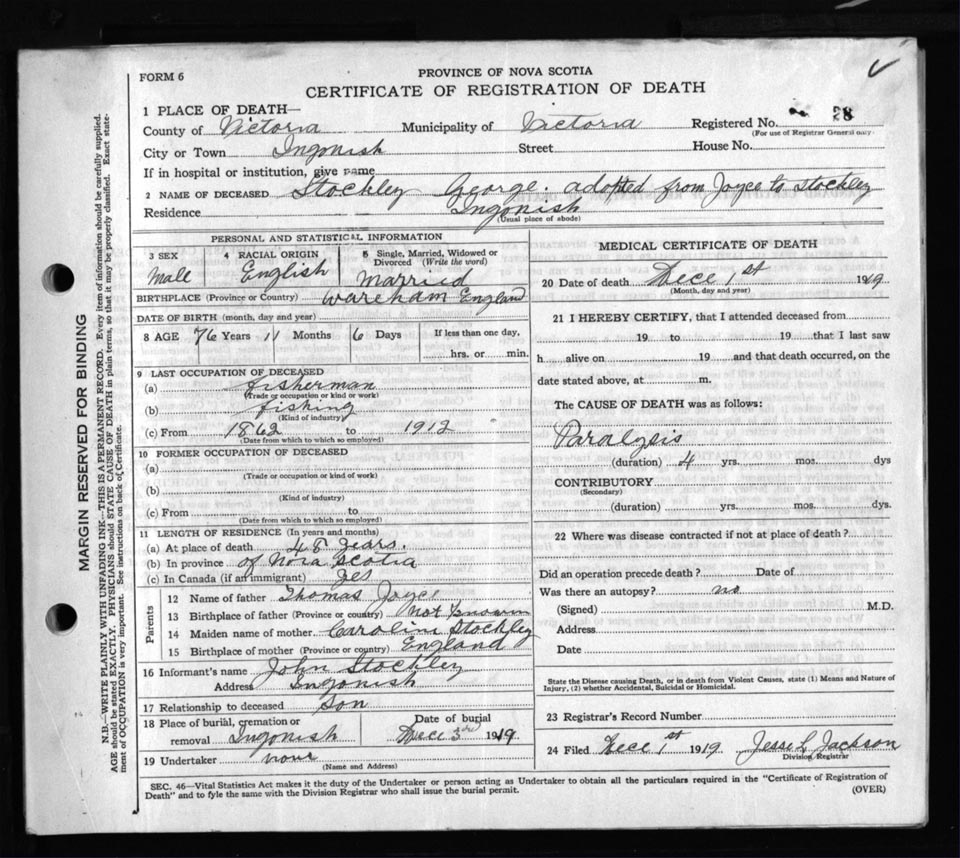 FORM 6
PROVINCE OF NOVA SCOTIA
CERTIFICATE OF REGISTRATION OF DEATH
1 PLACE OF DEATH—
County of Victoria Municipality of Victoria Registered No. 28
(For use of Registrar General only.
City or Town Ingonish Street House No.
If in hospital or institution, give name
2 NAME OF DECEASED Stockley George. adopted from Joyce to Stockley
Residence Ingonish
(Usual place of abode)
PERSONAL AND STATISTICAL INFORMATION
3 SEX Male
4 RACIAL ORIGIN English
5 Single, Married, Widowed or Divorced (Write the word) Married
BIRTHPLACE (Province or Country) Wareham England
DATE OF BIRTH (month, day and year)
8 AGE 76 Years 11 Months 6 Days If less than one day, hrs. or min.
9 LAST OCCUPATION OF DECEASED
(a) fisherman
(Trade or occupation or kind or work)
(b) fishing
(Kind of industry)
(c) From 1862 to 1912
(Date from which to which so employed)
10 FORMER OCCUPATION OF DECEASED
(a)
(Trade or occupation or kind of work)
(b)
(Kind of industry)
(c) From to
(Date from which to which so employed)
11 LENGTH OF RESIDENCE (In years and months)
(a) At place of death 48 years.
(b) In province of Nova Scotia
(c) In Canada (if an immigrant) yes
Parents
12 Name of father Thomas Joyce
13 Birthplace of father (Province or country) not known
14 Maiden name of mother Caroline Stockley
15 Birthplace of mother (Province or country) England
16 Informant's name John Stockley
Address Ingonish
17 Relationship to deceased son
18 Place of burial, cremation or removal Ingonish Date of burial Dec 3rd 1919
19 Undertaker none
(Name and Address)
MEDICAL CERTIFICATE OF DEATH
20 Date of death Dece 1st 1919
(Month, day and year)
21 I HEREBY CERTIFY, that I attended deceased from
19 to 19 that I last saw
h alive on 19 and that death occurred, on the
date stated above, at m.
The CAUSE OF DEATH was as follows:
Paralysis
(duration) 4 yrs. mos. dys
CONTRIBUTORY
(Secondary)
(duration) yrs. mos. dys.
22 Where was disease contracted if not at place of death?
Did an operation precede death? Date of
Was there an autopsy? no
(Signed) M.D.
Address
Date
State the Disease causing Death, or in death from Violent Causes, state (1) Means and Nature of
Injury, (2) whether Accidental, Suicidal or Homicidal.
23 Registrar's Record Number
24 Filed Dece 1st 1919 Jesse L Jackson
Division Registrar
SEC. 46—Vital Statistics Act makes it the duty of the Undertaker or person acting as Undertaker to obtain all the particulars required in the "Certificate of Registration of
Death" and to fyle the same with the Division Registrar who shall issue the burial permit.
(OVER)
MARGIN RESERVED FOR BINDING
N.B.—WRITE PLAINLY WITH UNFADING INK—THIS IS A PERMANENT RECORD. Every item of information should be carefully supplied.
AGE should be stated EXACTLY. PHYSICIANS should STATE CAUSE OF DEATH in plain terms, so that it may be properly classified. Exact state-
ment of OCCUPATION is very important. See instructions on back of Certificate.